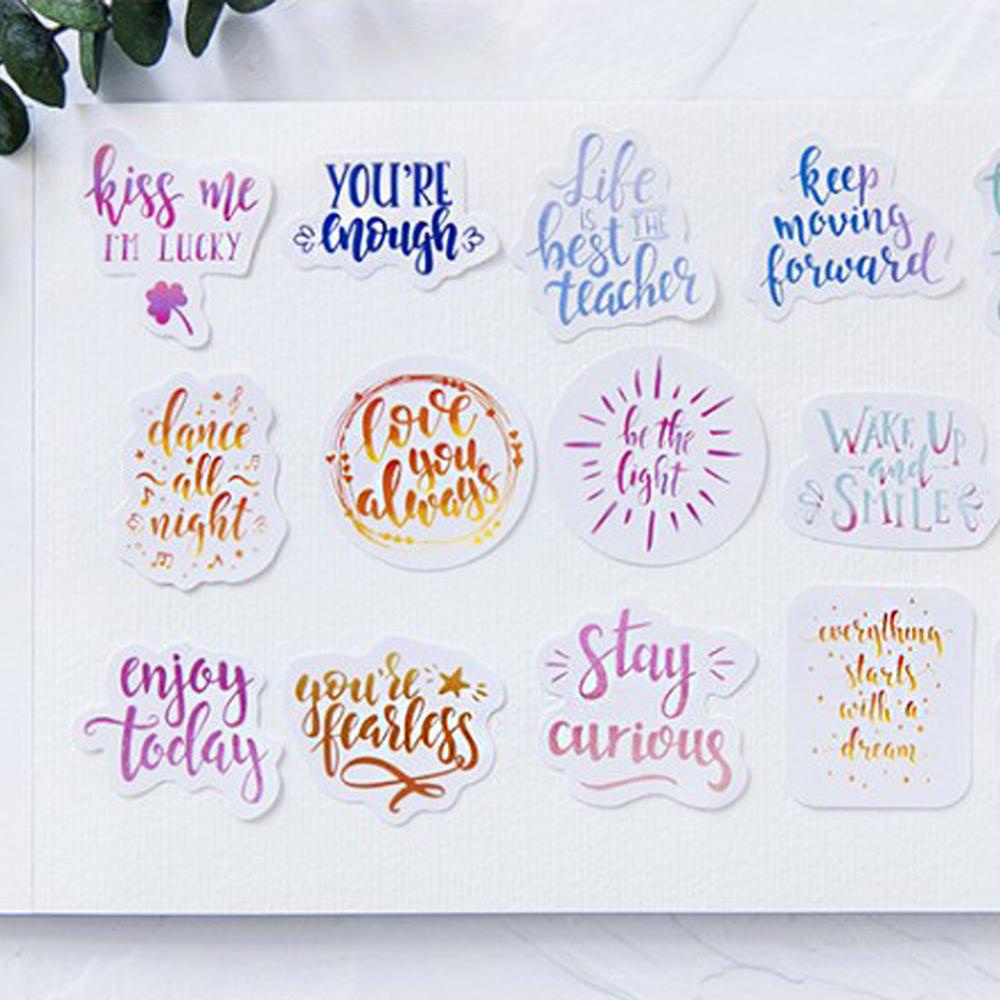 kiss me
I'M LUCKY
YOU'RE
enough
Life
IS THE
best
teacher
keep
moving
forward
dance
all
night
love
you
always
be the
light
WAKE UP
and
SMILE
enjoy
today
you're
fearless
stay
curious
everything
starts
with a
dream